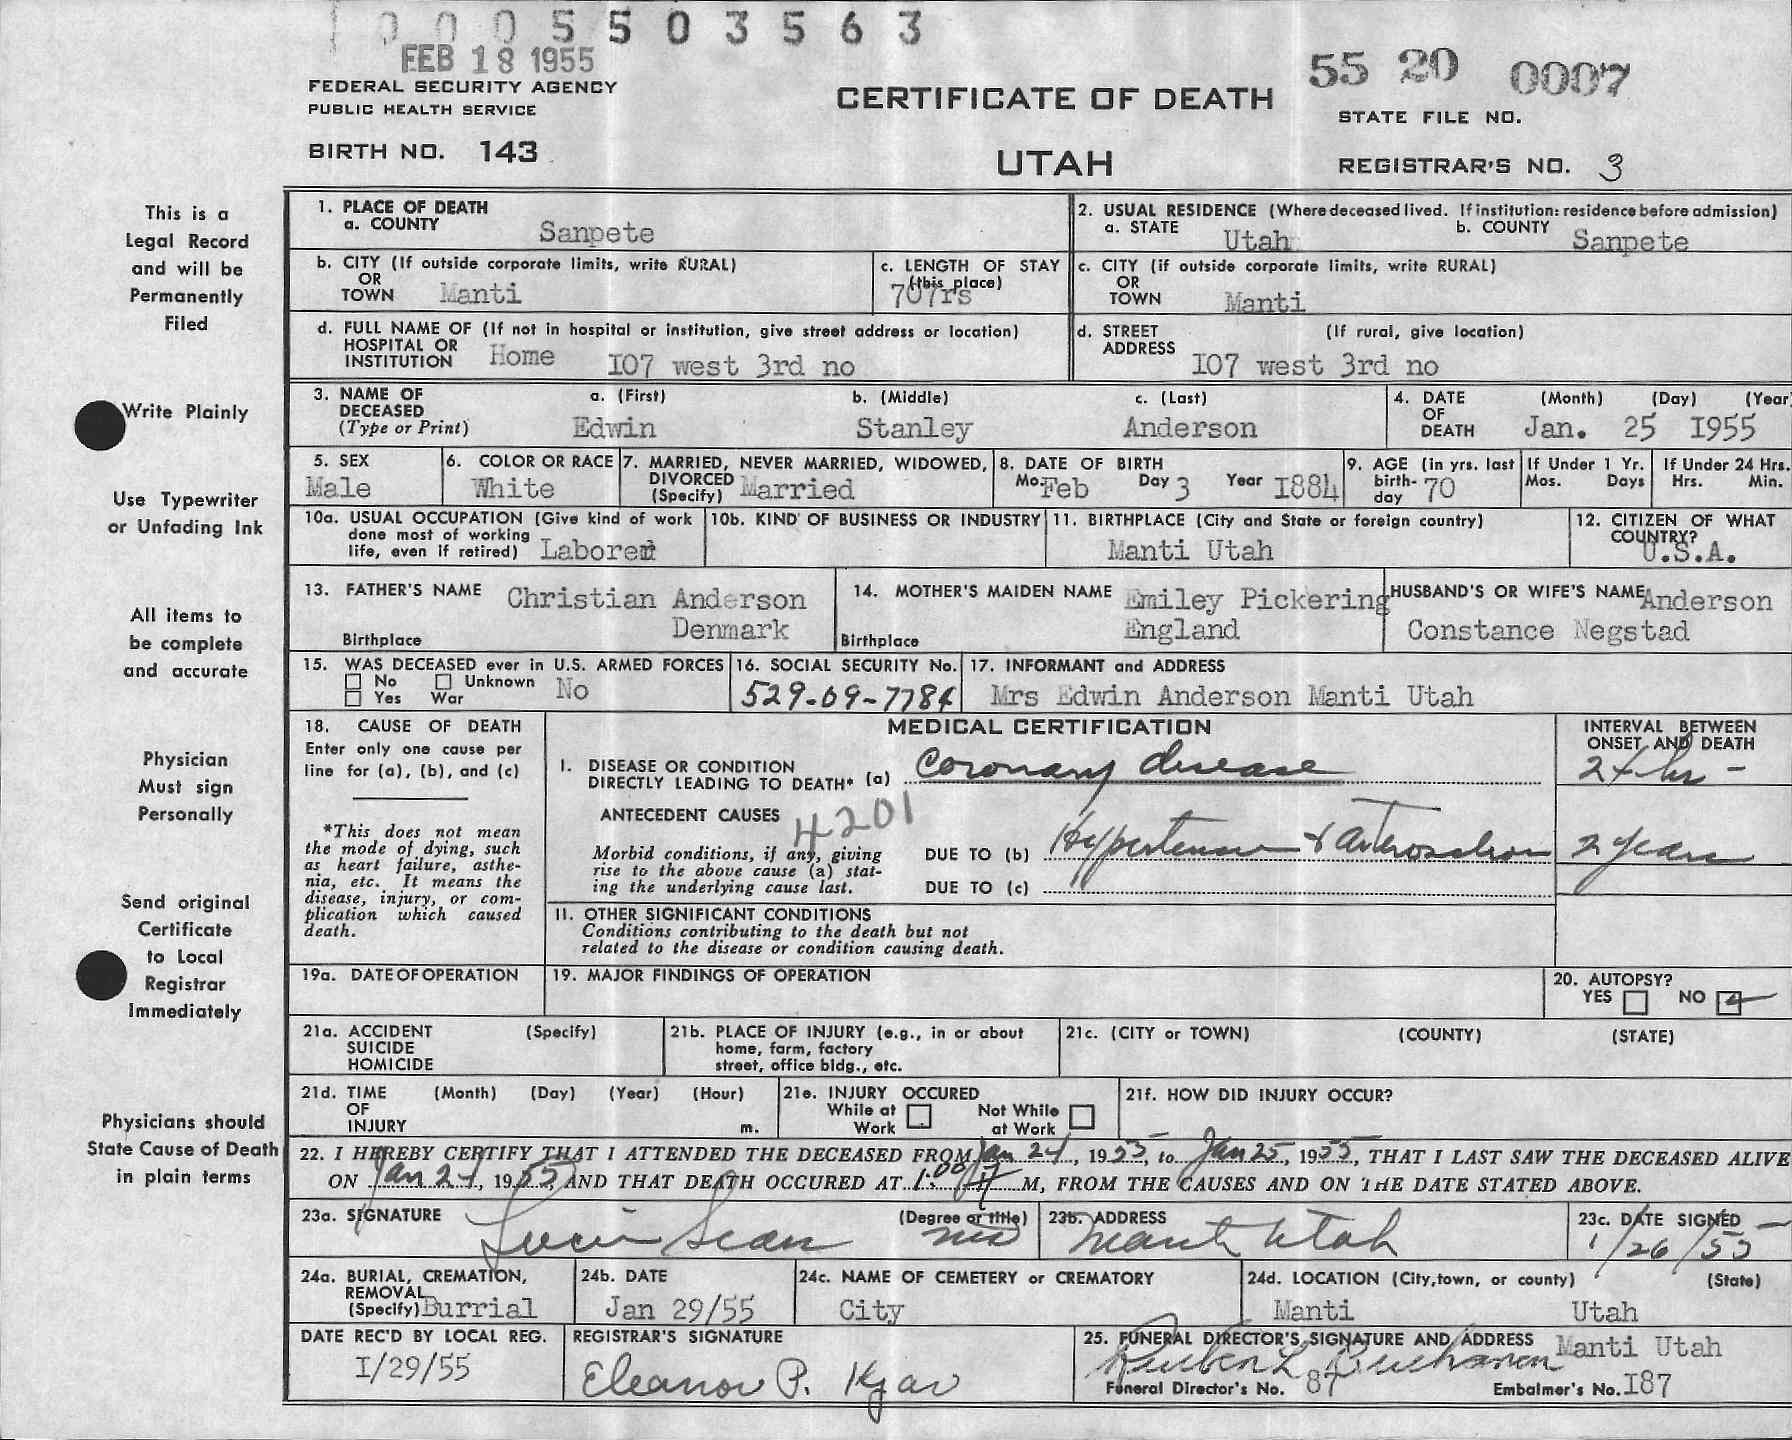 0 0 0 5 5 0 3 5 6 3
FEB 18 1955
FEDERAL SECURITY AGENCY
PUBLIC HEALTH SERVICE
BIRTH NO. 143
CERTIFICATE OF DEATH
UTAH
55 20 0007
STATE FILE NO.
REGISTRAR'S NO. 3
This is a
Legal Record
and will be
Permanently
Filed
Write Plainly
Use Typewriter
or Unfading Ink
All items to
be complete
and accurate
Physician
Must sign
Personally
Send original
Certificate
to Local
Registrar
Immediately
Physicians should
State Cause of Death
in plain terms
1. PLACE OF DEATH
a. COUNTY Sanpete
2. USUAL RESIDENCE (Where deceased lived. If institution: residence before admission)
a. STATE Utah b. COUNTY Sanpete
b. CITY (If outside corporate limits, write RURAL)
OR
TOWN Manti
c. LENGTH OF STAY
(this place)
707rs
c. CITY (if outside corporate limits, write RURAL)
OR
TOWN Manti
d. FULL NAME OF (If not in hospital or institution, give street address or location)
HOSPITAL OR
INSTITUTION Home I07 west 3rd no
d. STREET (If rural, give location)
ADDRESS I07 west 3rd no
3. NAME OF a. (First) b. (Middle) c. (Last)
DECEASED
(Type or Print) Edwin Stanley Anderson
4. DATE (Month) (Day) (Year
OF
DEATH Jan. 25 I955
5. SEX
Male
6. COLOR OR RACE
White
7. MARRIED, NEVER MARRIED, WIDOWED,
DIVORCED
(Specify) Married
8. DATE OF BIRTH
Mo. Feb Day 3 Year I884
9. AGE (in yrs. last
birth-
day 70
If Under 1 Yr.
Mos. Days
If Under 24 Hrs.
Hrs. Min.
10a. USUAL OCCUPATION (Give kind of work
done most of working
life, even if retired) Laborer
10b. KIND OF BUSINESS OR INDUSTRY
11. BIRTHPLACE (City and State or foreign country)
Manti Utah
12. CITIZEN OF WHAT
COUNTRY?
U.S.A.
13. FATHER'S NAME Christian Anderson
Birthplace Denmark
14. MOTHER'S MAIDEN NAME Emiley Pickering
Birthplace England
HUSBAND'S OR WIFE'S NAME Anderson
Constance Negstad
15. WAS DECEASED ever in U.S. ARMED FORCES
No Unknown No
Yes War
16. SOCIAL SECURITY No.
529-09-7784
17. INFORMANT and ADDRESS
Mrs Edwin Anderson Manti Utah
18. CAUSE OF DEATH
Enter only one cause per
line for (a), (b), and (c)
*This does not mean
the mode of dying, such
as heart failure, asthe-
nia, etc. It means the
disease, injury, or com-
plication which caused
death.
MEDICAL CERTIFICATION
I. DISEASE OR CONDITION
DIRECTLY LEADING TO DEATH* (a) Coronary disease
ANTECEDENT CAUSES 4201
Morbid conditions, if any, giving
rise to the above cause (a) stat-
ing the underlying cause last.
DUE TO (b) Hypertension +
DUE TO (c)
INTERVAL BETWEEN
ONSET AND DEATH
24 hr -
2 years
II. OTHER SIGNIFICANT CONDITIONS
Conditions contributing to the death but not
related to the disease or condition causing death.
19a. DATE OF OPERATION
19. MAJOR FINDINGS OF OPERATION
20. AUTOPSY?
YES NO
21a. ACCIDENT (Specify)
SUICIDE
HOMICIDE
21b. PLACE OF INJURY (e.g., in or about
home, farm, factory
street, office bldg., etc.
21c. (CITY or TOWN) (COUNTY) (STATE)
21d. TIME (Month) (Day) (Year) (Hour)
OF
INJURY m.
21e. INJURY OCCURED
While at Work Not While at Work
21f. HOW DID INJURY OCCUR?
22. I HEREBY CERTIFY THAT I ATTENDED THE DECEASED FROM Jan 24, 1955, to Jan 25, 1955, THAT I LAST SAW THE DECEASED ALIVE
ON Jan 24, 1955, AND THAT DEATH OCCURED AT 1:00 M, FROM THE CAUSES AND ON THE DATE STATED ABOVE.
23a. SIGNATURE (Degree or title)
23b. ADDRESS
Manti Utah
23c. DATE SIGNED
1/26/55
24a. BURIAL, CREMATION,
REMOVAL
(Specify) Burrial
24b. DATE
Jan 29/55
24c. NAME OF CEMETERY or CREMATORY
City
24d. LOCATION (City, town, or county) (State)
Manti Utah
DATE REC'D BY LOCAL REG.
I/29/55
REGISTRAR'S SIGNATURE
Eleanor P. Kjar
25. FUNERAL DIRECTOR'S SIGNATURE AND ADDRESS Manti Utah
Ruben L Buchanan
Funeral Director's No. 87 Embalmer's No. I87